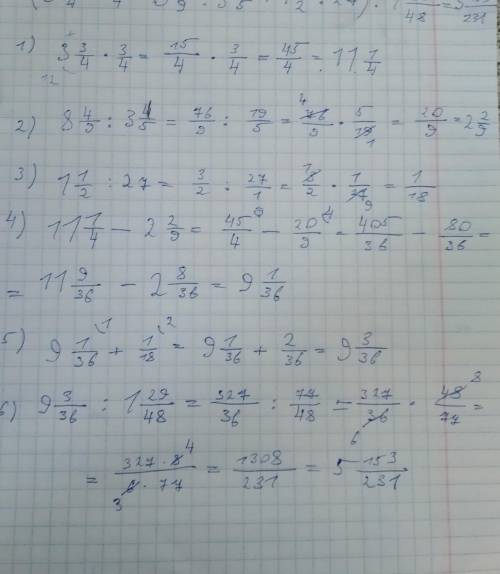 48 231
1) 3 3/4 · 3/4 = 15/4 · 3/4 = 45/4 = 11 1/4
12
2) 8 4/9 : 3 4/5 = 76/9 : 19/5 = 4 76/9 · 5/19 1 = 20/9 = 2 2/9
3) 1 1/2 : 27 = 3/2 : 27/1 = 1 3/2 · 1/27 9 = 1/18
4) 11 1/4 - 2 2/9 = 45/4 9 - 20/9 4 = 405/36 - 80/36 =
= 11 9/36 - 2 8/36 = 9 1/36
5) 9 1/36 \1 + 1/18 \2 = 9 1/36 + 2/36 = 9 3/36
6) 9 3/36 : 1 29/48 = 327/36 : 77/48 = 327/36 6 · 48 8/77 =
= 327 · 8 4/3 6 · 77 = 1308/231 = 5 153/231